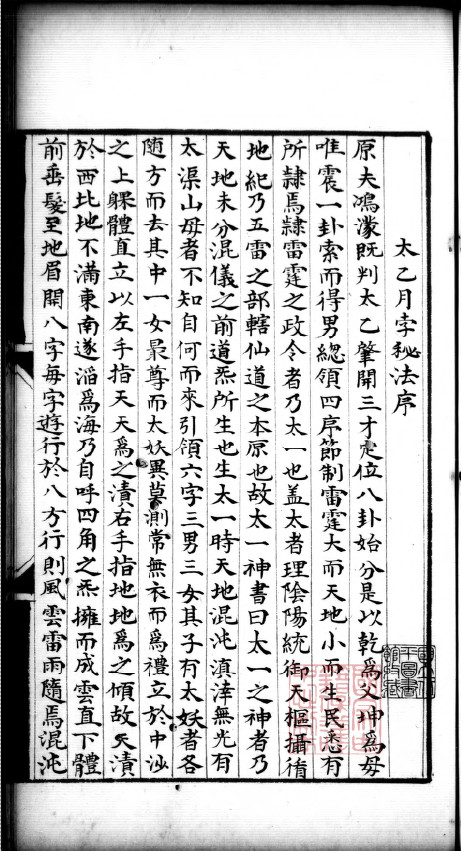 太乙月孛秘法序
原夫鴻濛既判太乙肇開三才定位八卦始分是以乾爲父坤爲母
唯震一卦索而得男緫領四序節制雷霆大而天地小而生民悉有
所隷焉隷雷霆之政令者乃太一也盖太者理陰陽統御天樞攝循
地紀乃五雷之部轄仙道之本原也故太一神書曰太一之神者乃
天地未分混儀之前道炁所生也生太一時天地混沌滇涬無光有
太渠山母者不知自何而來引領六字三男三女其子有太妖者各
隨方而去其中一女最尊而太妖異莫測常無衣而爲禮立於中沙
之上躶體直立以左手指天天爲之漬右手指地地爲之傾故天漬
於西比地不滿東南遂滔爲海乃自呼四角之炁擁而成雲直下體
前垂髮至地眉開八字每字遊行於八方行則風雲雷雨隨焉混沌